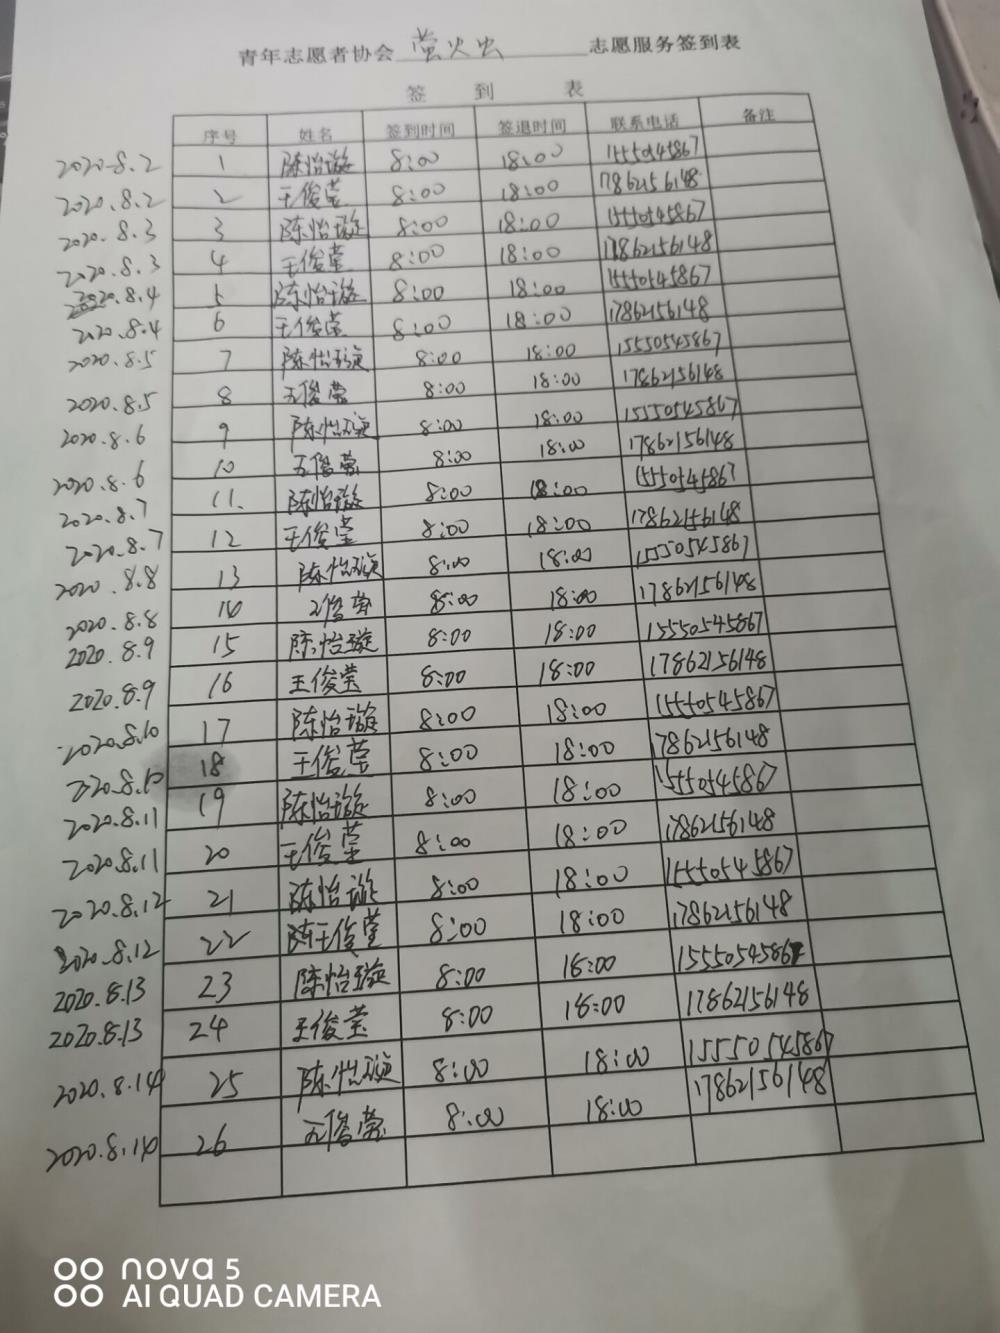 青年志愿者协会 萤火虫 志愿服务签到表
签 到 表
序号 姓名 签到时间 签退时间 联系电话 备注
2020.8.2 1 陈怡璇 8:00 18:00 15550545867
2020.8.2 2 王俊莹 8:00 18:00 17862156148
2020.8.3 3 陈怡璇 8:00 18:00 15550545867
2020.8.3 4 王俊莹 8:00 18:00 17862156148
2020.8.4 5 陈怡璇 8:00 18:00 15550545867
2020.8.4 6 王俊莹 8:00 18:00 17862156148
2020.8.5 7 陈怡璇 8:00 18:00 15550545867
2020.8.5 8 王俊莹 8:00 18:00 17862156148
2020.8.6 9 陈怡璇 8:00 18:00 15550545867
2020.8.6 10 王俊莹 8:00 18:00 17862156148
2020.8.7 11. 陈怡璇 8:00 18:00 15550545867
2020.8.7 12 王俊莹 8:00 18:00 17862156148
2020.8.8 13 陈怡璇 8:00 18:00 15550545867
2020.8.8 14 王俊莹 8:00 18:00 17862156148
2020.8.9 15 陈怡璇 8:00 18:00 15550545867
2020.8.9 16 王俊莹 8:00 18:00 17862156148
2020.8.10 17 陈怡璇 8:00 18:00 15550545867
2020.8.10 18 王俊莹 8:00 18:00 17862156148
2020.8.11 19 陈怡璇 8:00 18:00 15550545867
2020.8.11 20 王俊莹 8:00 18:00 17862156148
2020.8.12 21 陈怡璇 8:00 18:00 15550545867
2020.8.12 22 王俊莹 8:00 18:00 17862156148
2020.8.13 23 陈怡璇 8:00 18:00 15550545867
2020.8.13 24 王俊莹 8:00 18:00 17862156148
2020.8.14 25 陈怡璇 8:00 18:00 15550545867
2020.8.14 26 王俊莹 8:00 18:00 17862156148
nova 5
AI QUAD CAMERA